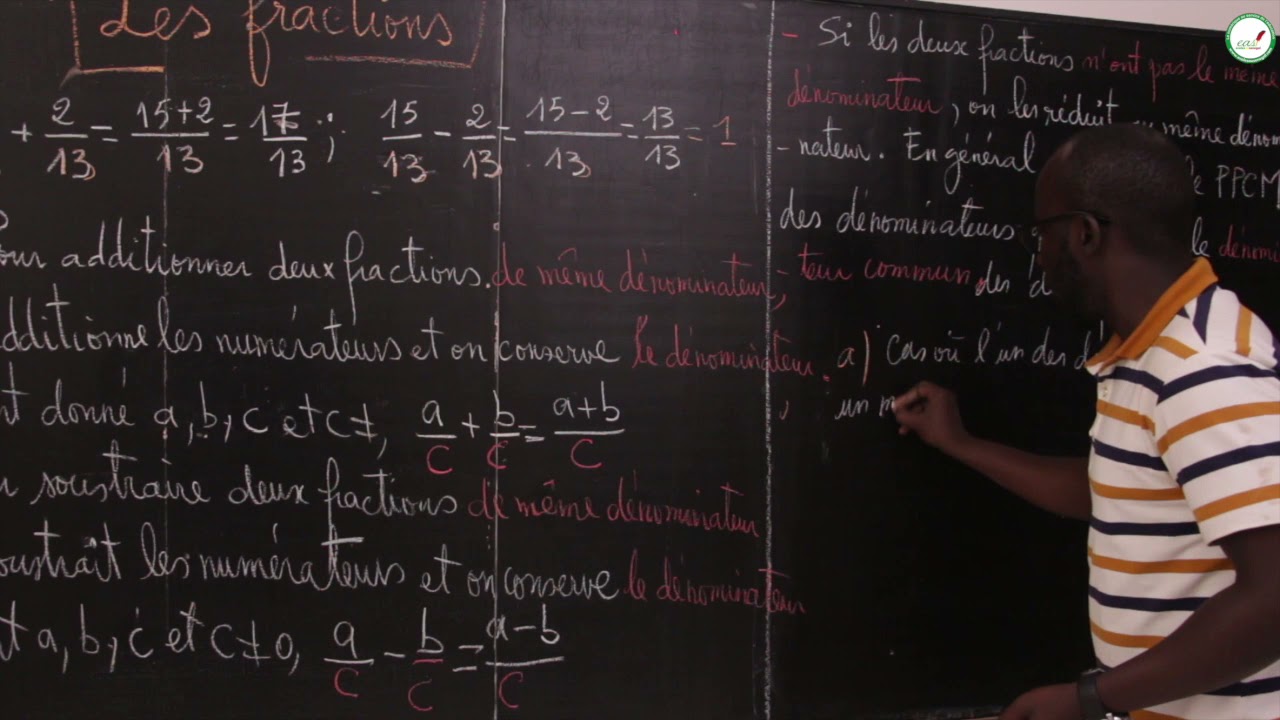 Les fractions
+ 2/13 = 15+2/13 = 17/13 ; 15/13 - 2/13 = 15-2/13 = 13/13 = 1
our additionner deux fractions de même dénominateur,
dditionne les numérateurs et on conserve le dénominateur.
nt donné a, b, c et c ≠, a/c + b/c = a+b/c
soustraire deux fractions de même dénominateur
oustrait les numérateurs et on conserve le dénominateur
t a, b, c et c ≠ 0, a/c - b/c = a-b/c
- Si les deux fractions n'ont pas le même
dénominateur, on les réduit même dénom
- nateur. En général le PPCM
des dénominateurs le dénomi
- teur commun des
a) Cas où l'un des d
un m
eas!